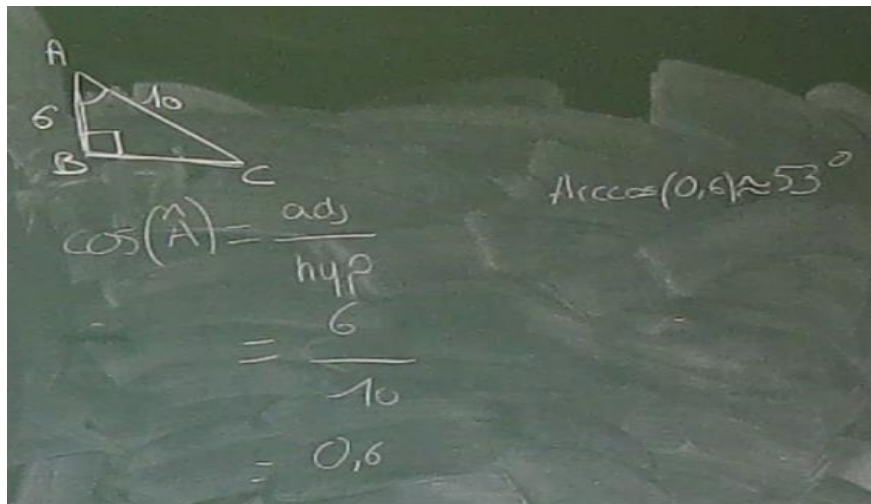 A
10
6
B
C
cos(Â) = adj
hyp
= 6
10
= 0,6
Arccos(0,6)≈53°